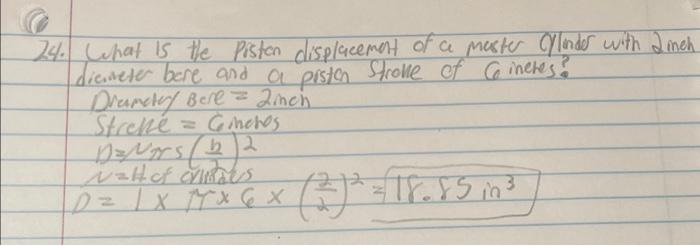 24. What is the Piston displacement of a master Cylinder with 2 inch
diameter bore and a piston Stroke of 6 inches?
Diameter Bore = 2inch
Stroke = 6 inches
D=Nπs(b/2)²
N=# of cylinders
D = 1 x π x 6 x (2/2)² = 18.85 in³